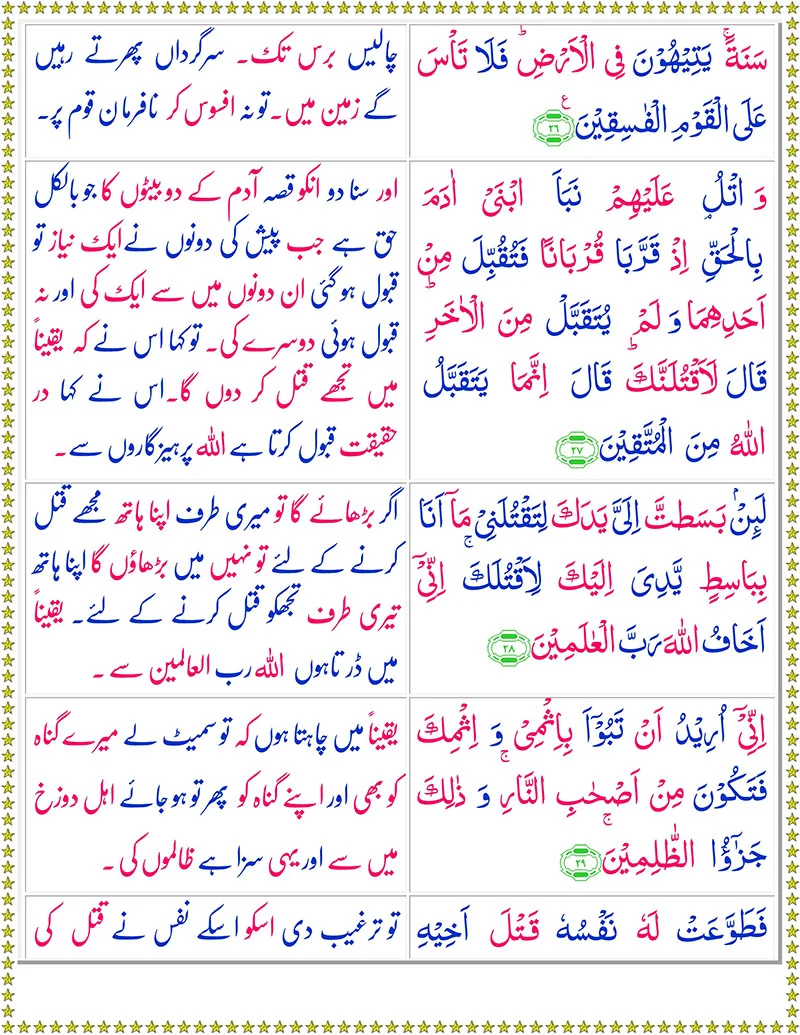 سَنَةً ۚ يَتِيْهُوْنَ فِى الْاَرْضِ ؕ فَلَا تَاْسَ
عَلَى الْقَوْمِ الْفٰسِقِيْنَ ﴿۲۶﴾ ع
چالیس برس تک۔ سرگرداں پھرتے رہیں
گے زمین میں۔ تو نہ افسوس کر نافرمان قوم پر۔
وَ اتْلُ عَلَيْهِمْ نَبَاَ ابْنَىْ اٰدَمَ
بِالْحَقِّ ۘ اِذْ قَرَّبَا قُرْبَانًا فَتُقُبِّلَ مِنْ
اَحَدِهِمَا وَ لَمْ يُتَقَبَّلْ مِنَ الْاٰخَرِ ؕ
قَالَ لَاَقْتُلَنَّكَ ؕ قَالَ اِنَّمَا يَتَقَبَّلُ
اللّٰهُ مِنَ الْمُتَّقِيْنَ ﴿۲۷﴾
اور سنا دو انکو قصہ آدم کے دو بیٹوں کا جو بالکل
حق ہے جب پیش کی دونوں نے ایک نیاز تو
قبول ہو گئی ان دونوں میں سے ایک کی اور نہ
قبول ہوئی دوسرے کی۔ تو کہا اس نے کہ یقیناً
میں تجھے قتل کر دوں گا۔ اس نے کہا در
حقیقت قبول کرتا ہے اللہ پرہیزگاروں سے۔
لَئِنْۢ بَسَطْتَّ اِلَىَّ يَدَكَ لِتَقْتُلَنِىْ مَاۤ اَنَا
بِبَاسِطٍ يَّدِىَ اِلَيْكَ لِاَقْتُلَكَ ۚ اِنِّىْۤ
اَخَافُ اللّٰهَ رَبَّ الْعٰلَمِيْنَ ﴿۲۸﴾
اگر بڑھائے گا تو میری طرف اپنا ہاتھ مجھے قتل
کرنے کے لئے تو نہیں میں بڑھاؤں گا اپنا ہاتھ
تیری طرف تجھکو قتل کرنے کے لئے۔ یقیناً
میں ڈرتا ہوں اللہ رب العالمین سے ۔
اِنِّىْۤ اُرِيْدُ اَنْ تَبُوْٓاَ بِاِثْمِىْ وَ اِثْمِكَ
فَتَكُوْنَ مِنْ اَصْحٰبِ النَّارِ ۚ وَ ذٰلِكَ
جَزٰٓؤُا الظّٰلِمِيْنَ ۚ ﴿۲۹﴾
یقیناً میں چاہتا ہوں کہ تو سمیٹ لے میرے گناہ
کو بھی اور اپنے گناہ کو پھر تو ہو جائے اہل دوزخ
میں سے اور یہی سزا ہے ظالموں کی ۔
فَطَوَّعَتْ لَهٗ نَفْسُهٗ قَتْلَ اَخِيْهِ
تو ترغیب دی اسکو اسکے نفس نے قتل کی